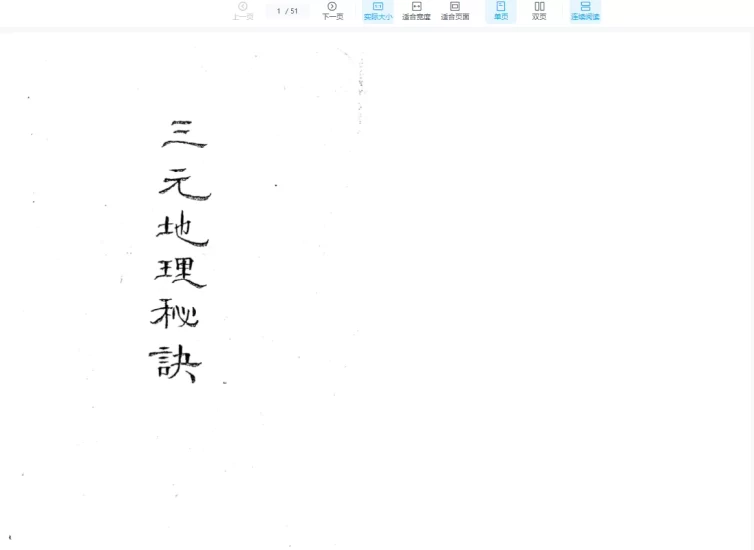 上一页
1 / 51
下一页
实际大小
适合宽度
适合页面
单页
双页
连续阅读
三元地理秘訣